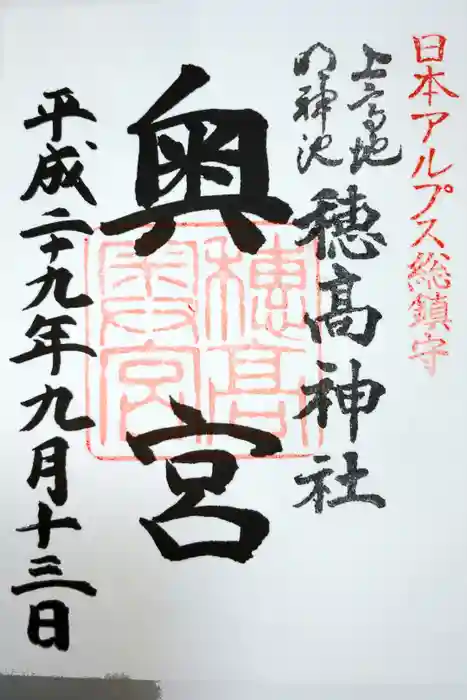 日本アルプス総鎮守
上高地
明神池
穂高神社
奥宮
穂高
奥宮
平成二十九年九月十三日